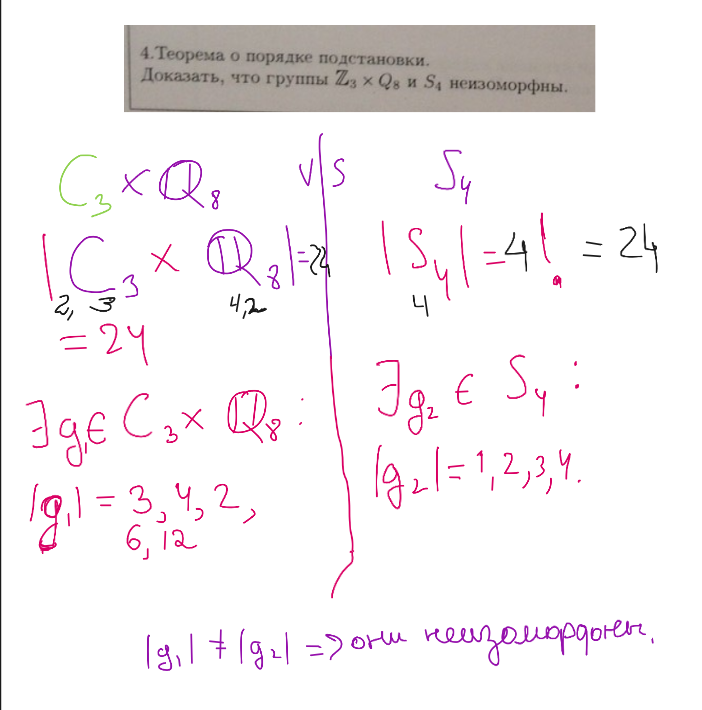 4.Теорема о порядке подстановки.
Доказать, что группы ℤ₃ × Q₈ и S₄ неизоморфны.
C₃ × Q₈ v/s S₄
|C₃ × Q₈| = 24
2, 3 4,2
= 24
|S₄| = 4! = 24
4
∃g₁ ∈ C₃ × Q₈ :
|g₁| = 3, 4, 2,
6, 12
∃g₂ ∈ S₄ :
|g₂| = 1, 2, 3, 4.
|g₁| ≠ |g₂| => они неизоморфны.